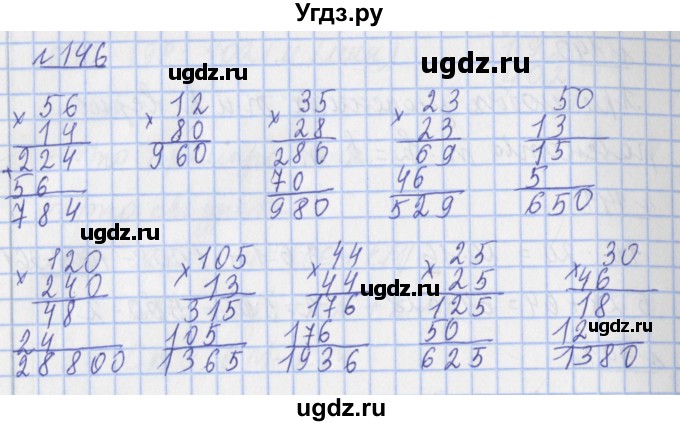 Угдз.ру
№146
ugdz.ru
ugdz.ru
56 12 35 23 50
× 14 × 80 × 28 × 23 13
224 960 280 69 15
+
56 70 46 5
784 980 529 650
ugdz.ru
ugdz.ru
ugdz.ru
120 105 44 25 30
× 240 × 13 × 44 × 25 × 46
48 315 176 125 18
ugdz.ru
24 105 176 50 12
ugdz.ru
28800 1365 1936 625 1380
ugdz.ru